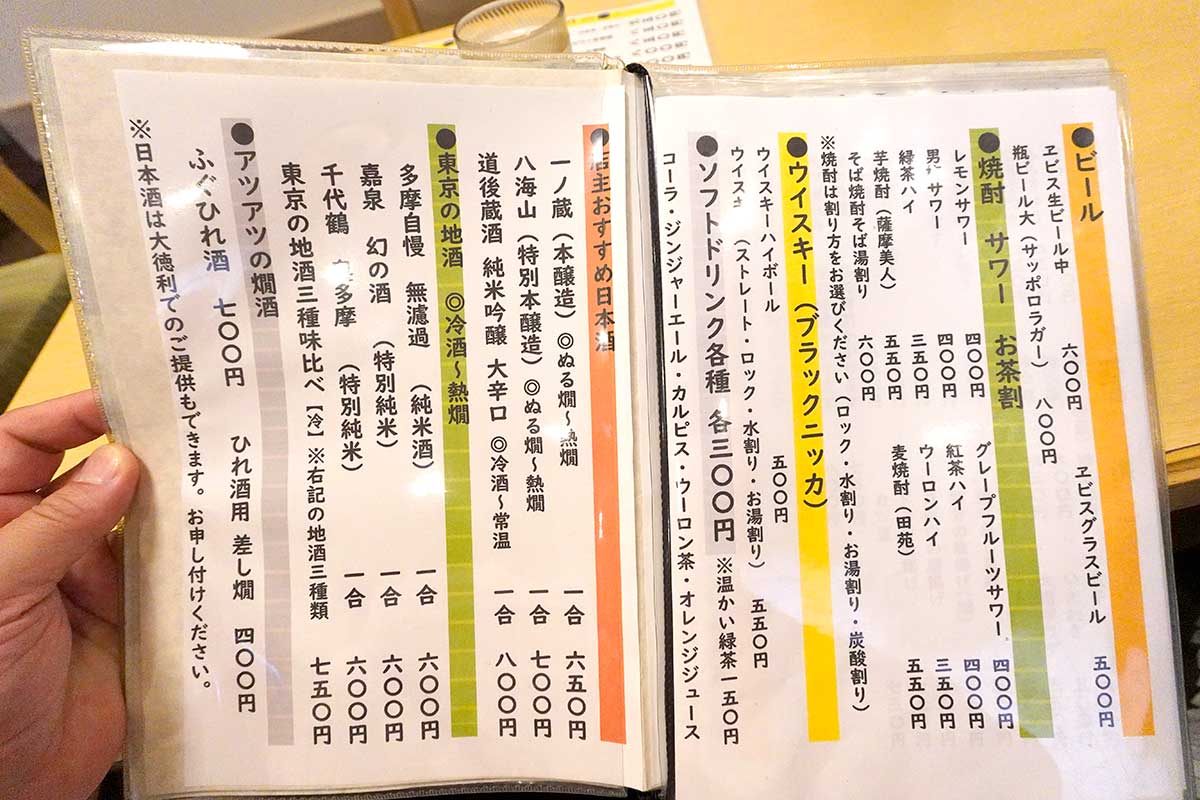 ●ビール
ヱビス生ビール中 六〇〇円 ヱビスグラスビール 五〇〇円
瓶ビール大(サッポロラガー) 八〇〇円
●焼酎 サワー お茶割
レモンサワー 四〇〇円 グレープフルーツサワー 四〇〇円
男サワー 四〇〇円 紅茶ハイ 四〇〇円
緑茶ハイ 三五〇円 ウーロンハイ 三五〇円
芋焼酎(薩摩美人) 五五〇円 麦焼酎(田苑) 五五〇円
そば焼酎そば湯割り 六〇〇円
※焼酎は割り方をお選びください(ロック・水割り・お湯割り・炭酸割り)
●ウイスキー(ブラックニッカ)
ウイスキーハイボール 五〇〇円
ウイスキ (ストレート・ロック・水割り・お湯割り) 五五〇円
●ソフトドリンク各種 各三〇〇円 ※温かい緑茶一五〇円
コーラ・ジンジャーエール・カルピス・ウーロン茶・オレンジジュース
●店主おすすめ日本酒
一ノ蔵(本醸造)◎ぬる燗~熱燗 一合 六五〇円
八海山(特別本醸造)◎ぬる燗~熱燗 一合 七〇〇円
道後蔵酒 純米吟醸 大辛口 ◎冷酒~常温 一合 八〇〇円
●東京の地酒 ◎冷酒~熱燗
多摩自慢 無濾過 (純米酒) 一合 六〇〇円
嘉泉 幻の酒 (特別純米) 一合 六〇〇円
千代鶴 多摩 (特別純米) 一合 六〇〇円
東京の地酒三種味比べ【冷】※右記の地酒三種類 七五〇円
●アツアツの燗酒
ふぐひれ酒 七〇〇円 ひれ酒用 差し燗 四〇〇円
※日本酒は大徳利でのご提供もできます。お申し付けください。